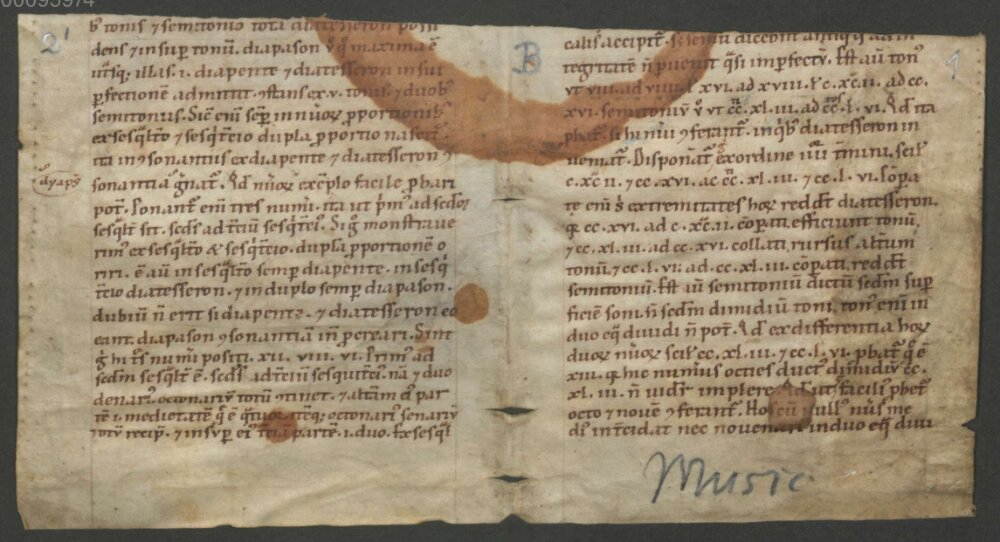 00095974
2'
B
1
dens ⁊ insup tonū. diapason ṽ q̃ maxima ē
utsq; illas .i. diapente ⁊ diatesseron in sui
pfectionē admittit ꝯstans ex .v. tonis. ⁊ duobꝰ
semitonus. Sic̄ eni sēp in nūoꝝ pportionibꝰ
ex sesqlt̄o ⁊ sesqt̄cio dupla pportio nascit̃
ita in ꝯsonantiis ex diapente ⁊ diatesseron
dyaps̄
sonantia gͥnat̃. Qd nūoꝝ exēplo facile pbari
pot̃. Ponant̃ eni tres numi. ita ut pͥmꝰ ad sedoꝫ
sesqlt̃ sit. seds̄ ad tciū sesqt̃ciꝰ. Sig̊ monstraue
rimꝰ ex sesqlt̄o & sesqt̄cio. duplā pportionē o
riri. ē aū in sesqlt̄o semp diapente. in sesq
t̄cio diatesseron. ⁊ in duplo semp diapason.
dubiū ñ erit si diapente ⁊ diatesseron co
eant. diapason ꝯsonantiā inͥ pcreari. Sint
g̊ hi t̄s numi positi. xii. viii. vi. Primꝰ ad
sedm sesqlt̃ ē. seds̄ ad tciū sesquitciꝰ. nā ⁊ duo
denariꝰ octonariū totū ꝯtinet. ⁊ alt̄am eiꝰ par
tē .i. medietatē q̊ ē q̃tuor. itēq; octonariꝰ senariū
totū recip̃. ⁊ insup eiꝰ t̄ciā partē .i. duo. Ex sesql
tegritatē ñ puenit q̃si impfectū. Est aū tonꝰ
ut viii. ad viiii. ł xvi. ad xviii. ł c. xc. ii. ad cc.
xvi. semitoniū ṽ ut c̄c̄. xl. iii. ad c̄c̄. l. vi. Qd ita
pbat̃. si hi nūi ꝯferant̃. in qͥbꝰ diatesseron in
ueniat̃. Disponat̃ ex ordine iiii t̃mini. scił
c. xc ii. ⁊ cc. xvi. ac c̄c̄. xl. iii. ⁊ cc. l. vi. Cōpa
te eni s̃ extremitates hoꝝ reddt̃ diatesseron.
q; cc. xvi. ad c. xc. ii. cōpati efficiunt tonū.
⁊ cc. xl. iii. ad cc. xvi. collati rursus altum
tonū ⁊ cc. l. vi. ad. cc. xl. iii. cōpati reddt̃
semitoniū. Est aū semitoniū dictū sedm sup
ficiē soni. ñ sedm dimidiū toni. tonꝰ eni in
duo eq̃ diuidi ñ pot̃. Qd ex differentia hoꝝ
duoꝝ nūoꝝ scił cc. xl. iii. ⁊ cc. l. vi. pbat̃ q̊ ē
xiii. q; hic numus octies ductꝰ dimidiū cc.
xl. iii. ñ uidr̃ implere. Qd ut faciliꝰ pbet̃
octo ⁊ nouē ꝯferant̃. Hos cū nullꝰ nūs me
diꝰ int̃cidat nec nouenariꝰ in duo eq̃ diui
Music